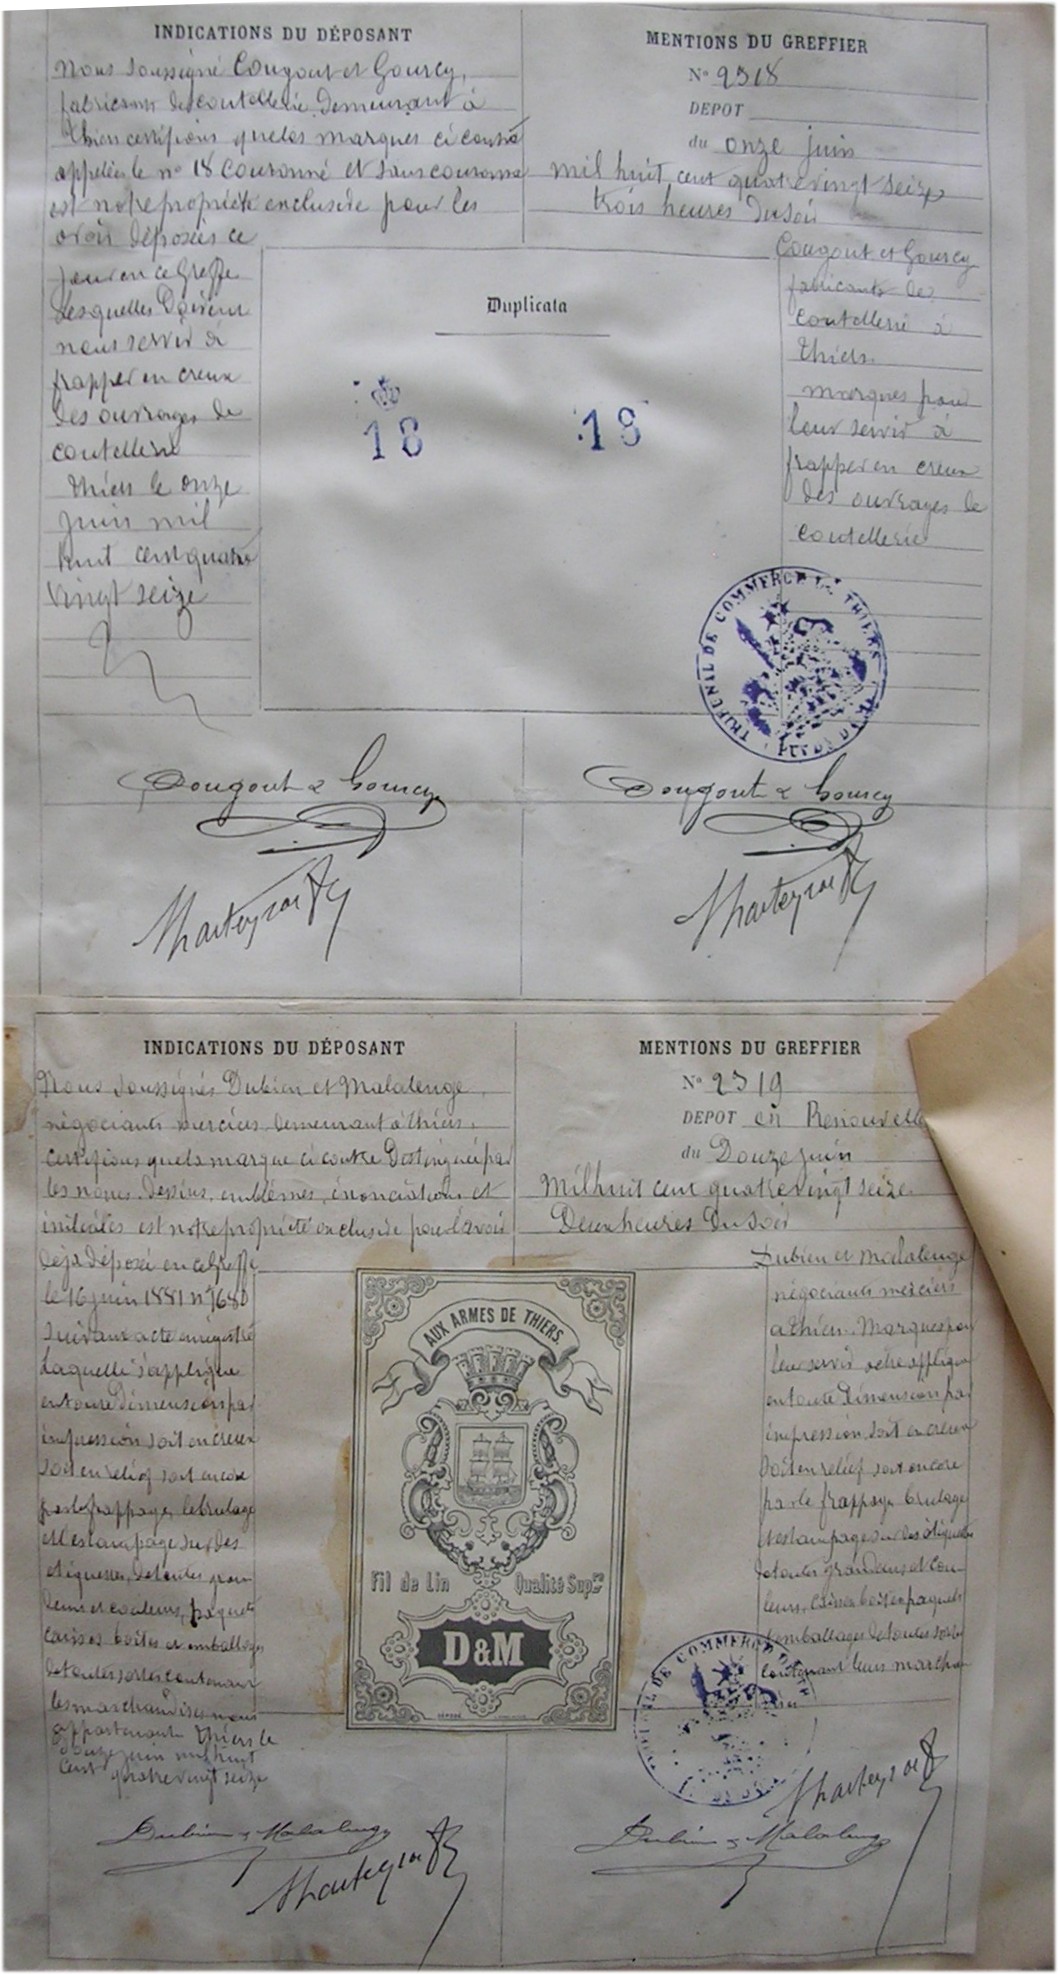 INDICATIONS DU DÉPOSANT
Nous soussigné Cougout et Gourcy,
fabricants de coutellerie demeurant à
Thiers certifions que les marques ci contre
appelées le nº 18 couronné et sans couronne
est notre propriété exclusive pour les
avoir déposées ce
jour en ce Greffe
Lesquelles Doivent
nous servir à
frapper en creux
des ouvrages de
coutellerie
Thiers le onze
juin mil
huit cent quatre
vingt seize
MENTIONS DU GREFFIER
Nº 2318
DEPOT
du onze juin
mil huit cent quatre vingt seize
trois heures du soir
Cougout et Gourcy
fabricants de
coutellerie à
Thiers.
marques pour
leur servir à
frapper en creux
des ouvrages de
coutellerie
Duplicata
18
18
TRIBUNAL DE COMMERCE DE THIERS
PUY DE DÔME
Cougout & Gourcy
Cougout & Gourcy
INDICATIONS DU DÉPOSANT
Nous soussignés Dubien et Malalenge
négociants merciers, demeurant à Thiers,
certifions que la marque ci contre Distinguée par
les noms, dessins, emblèmes, énonciations et
initiales est notre propriété exclusive pour l'avoir
déjà déposée en ce Greffe
le 16 juin 1881 nº 1680
suivant acte enregistré
Laquelle s'applique
en toute Dimension par
impression soit en creux
soit en relief soit encore
par le frappage, le brulage
et l'estampage sur des
étiquettes, de toutes gran
deurs et couleurs, paquets
caisses boîtes et emballages
de toutes sortes contenant
les marchandises nous
appartenant Thiers le
douze juin mil huit
cent quatre vingt seize
MENTIONS DU GREFFIER
Nº 2319
DEPOT en Renouvelle
du Douze juin
mil huit cent quatre vingt seize
Deux heures Du soir
Dubien et Malalenge
négociants merciers
à Thiers. Marques pou
leur servir
en toute Dimension par
impression, soit en creux
soit en relief soit encore
par le frappage brulage
et estampage sur des étiquettes
de toutes grandeurs et cou
leurs, caisses boîtes paquets
emballages de toutes sortes
contenant leurs marchan
dises
AUX ARMES DE THIERS.
Fil de Lin Qualité Supre
D&M
DÉPOSÉ
DE COMMERCE DE
Dubien & Malalenge
Dubien & Malalenge